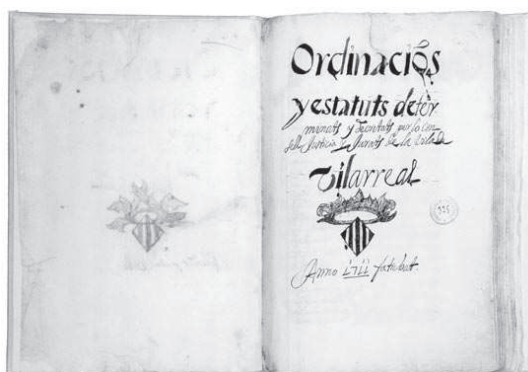 Ordinaciõs
y estatuts deter
menats y decretats per lo Con
sell Justicia y Jurats de la vila de
Vilarreal
Anno